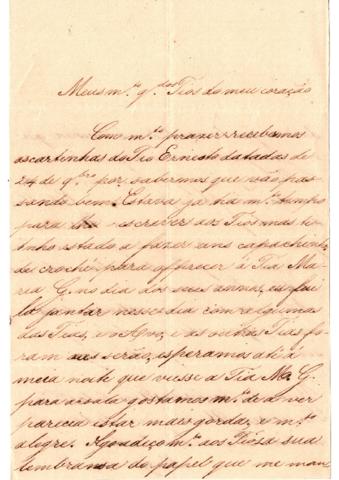 Meus m.tos q.dos Tios do meu coração
Com m.to prazer recebemos
as cartinhas do Tio Ernesto datadas de
24 de 9bro por sabermos que vão pas
sando bem. Estava ja ha m.to tempo
para escrever aos Tios mas te
nho estado a fazer uns capachinhos
de croché para offrecer á Tia Ma
ria G. no dia dos seus annos, eu fui
lá jantar nesse dia com algumas
das Tias, e o Avo, e as outras Tias fo
ram ao serão, esperamos até á
meia noite que viesse a Tia M.a G.
para a sala gostamos m.to de a ver
parecia estar mais gorda, e m.to
alegre. Agradeço m.to aos Tios a sua
lembransa do papel que me man